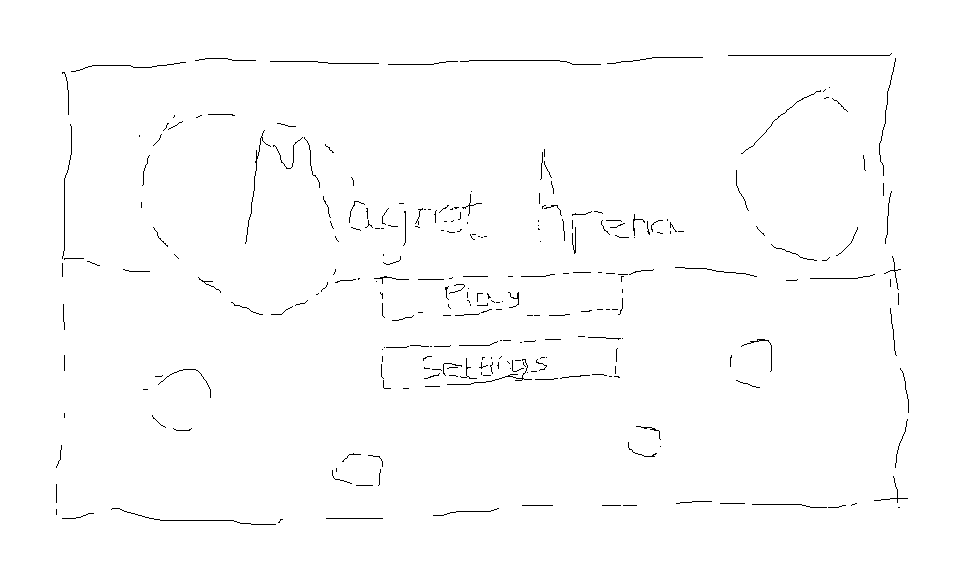 Magnet Arena
Play
Settings